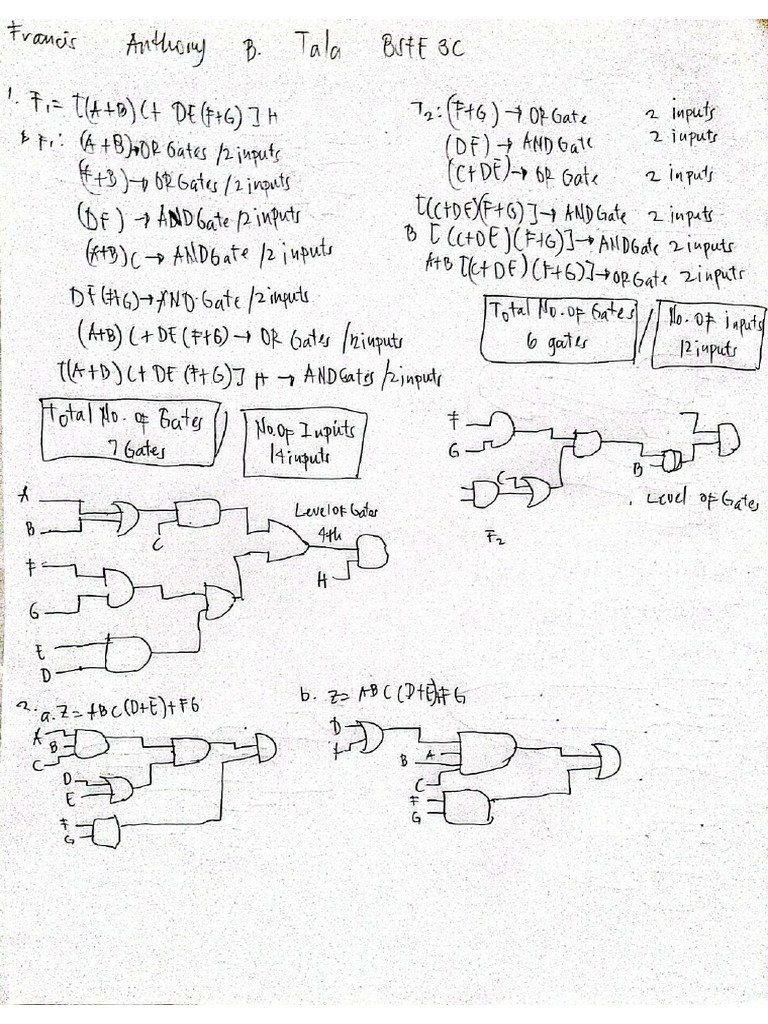 Francis Anthony B. Tala BSEE 3C
1. F₁ = [(A+B)C + DE(F+G)] H
F₁: (A+B)→OR Gates /2 inputs
(F+B)→OR Gates /2 inputs
(DE) → AND Gate /2 inputs
(A+B)C → AND Gate /2 inputs
DE(F+G)→AND Gate /2 inputs
(A+B)C+DE(F+G) → OR Gates /2 inputs
[(A+B)C+DE(F+G)] H → AND Gates /2 inputs
Total No. of Gates
7 Gates
No. Of Inputs
14 inputs
A
B
C
F
G
E
D
Level of Gates
4th
H
F2: (F+G) → OR Gate 2 inputs
(DE) → AND Gate 2 inputs
(C+DE)→ OR Gate 2 inputs
[(C+DE)(F+G)]→AND Gate 2 inputs
B [(C+DE)(F+G)]→AND Gate 2 inputs
A+B [(C+DE)(F+G)]→OR Gate 2 inputs
Total No. of Gates
6 gates
No. Of inputs
12 inputs
F
G
C
B
Level of Gates
F₂
2. a. Z = ABC(D+E)+FG
A
B
C
D
E
F
G
b. Z = ABC(D+E)+FG
D
A
B
C
F
G